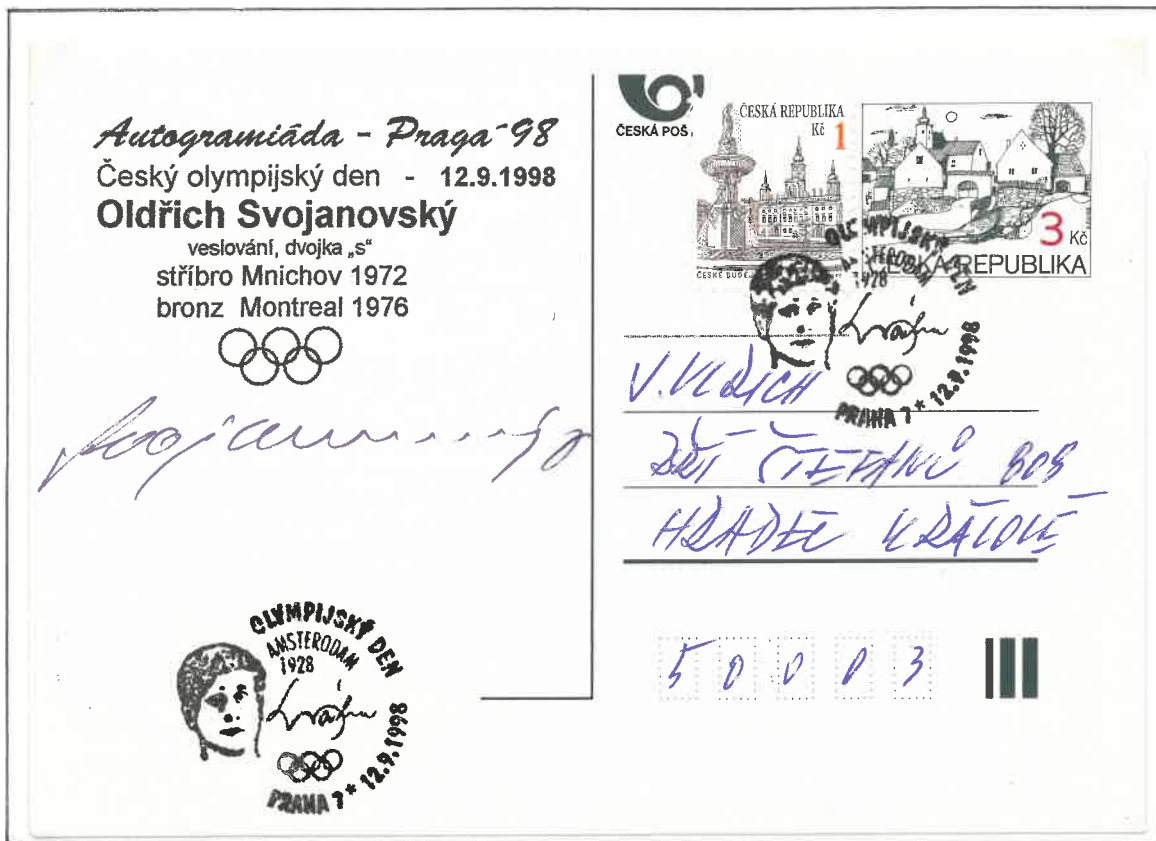 Autogramiáda - Praga ´98
Český olympijský den - 12.9.1998
Oldřich Svojanovský
veslování, dvojka „s“
stříbro Mnichov 1972
bronz Montreal 1976
Svojanovský
OLYMPIJSKÝ DEN
AMSTERODAM
1928
PRAHA 7 * 12.9.1998
ČESKÁ POŠ
ČESKÁ REPUBLIKA
Kč 1
ČESKÉ BUDĚJ
3 Kč
ČESKÁ REPUBLIKA
OLYMPIJSKÝ DEN
AMSTERODAM
1928
PRAHA 7 * 12.9.1998
V. ULRICH
808
HRADEC KRÁLOVÉ
50003